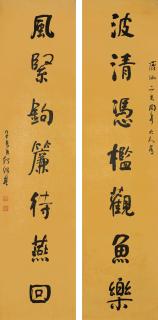 波清憑檻觀魚樂
風緊鉤簾待燕回